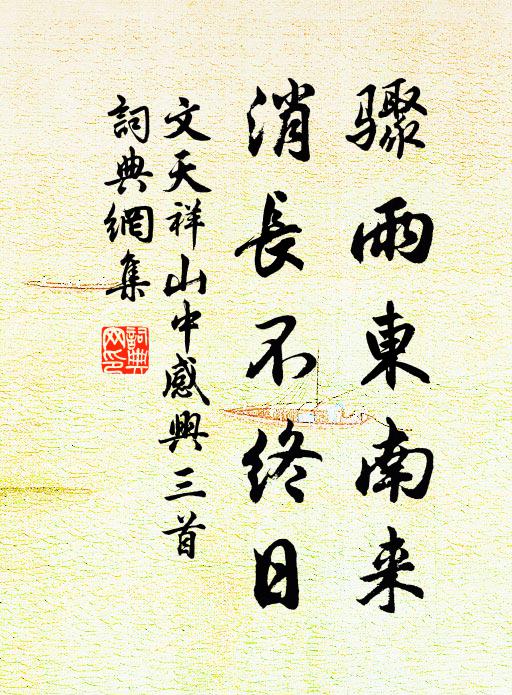 骤雨東南来
消長不終日
文天祥山中感興三首
詞典網集
詞典
网印